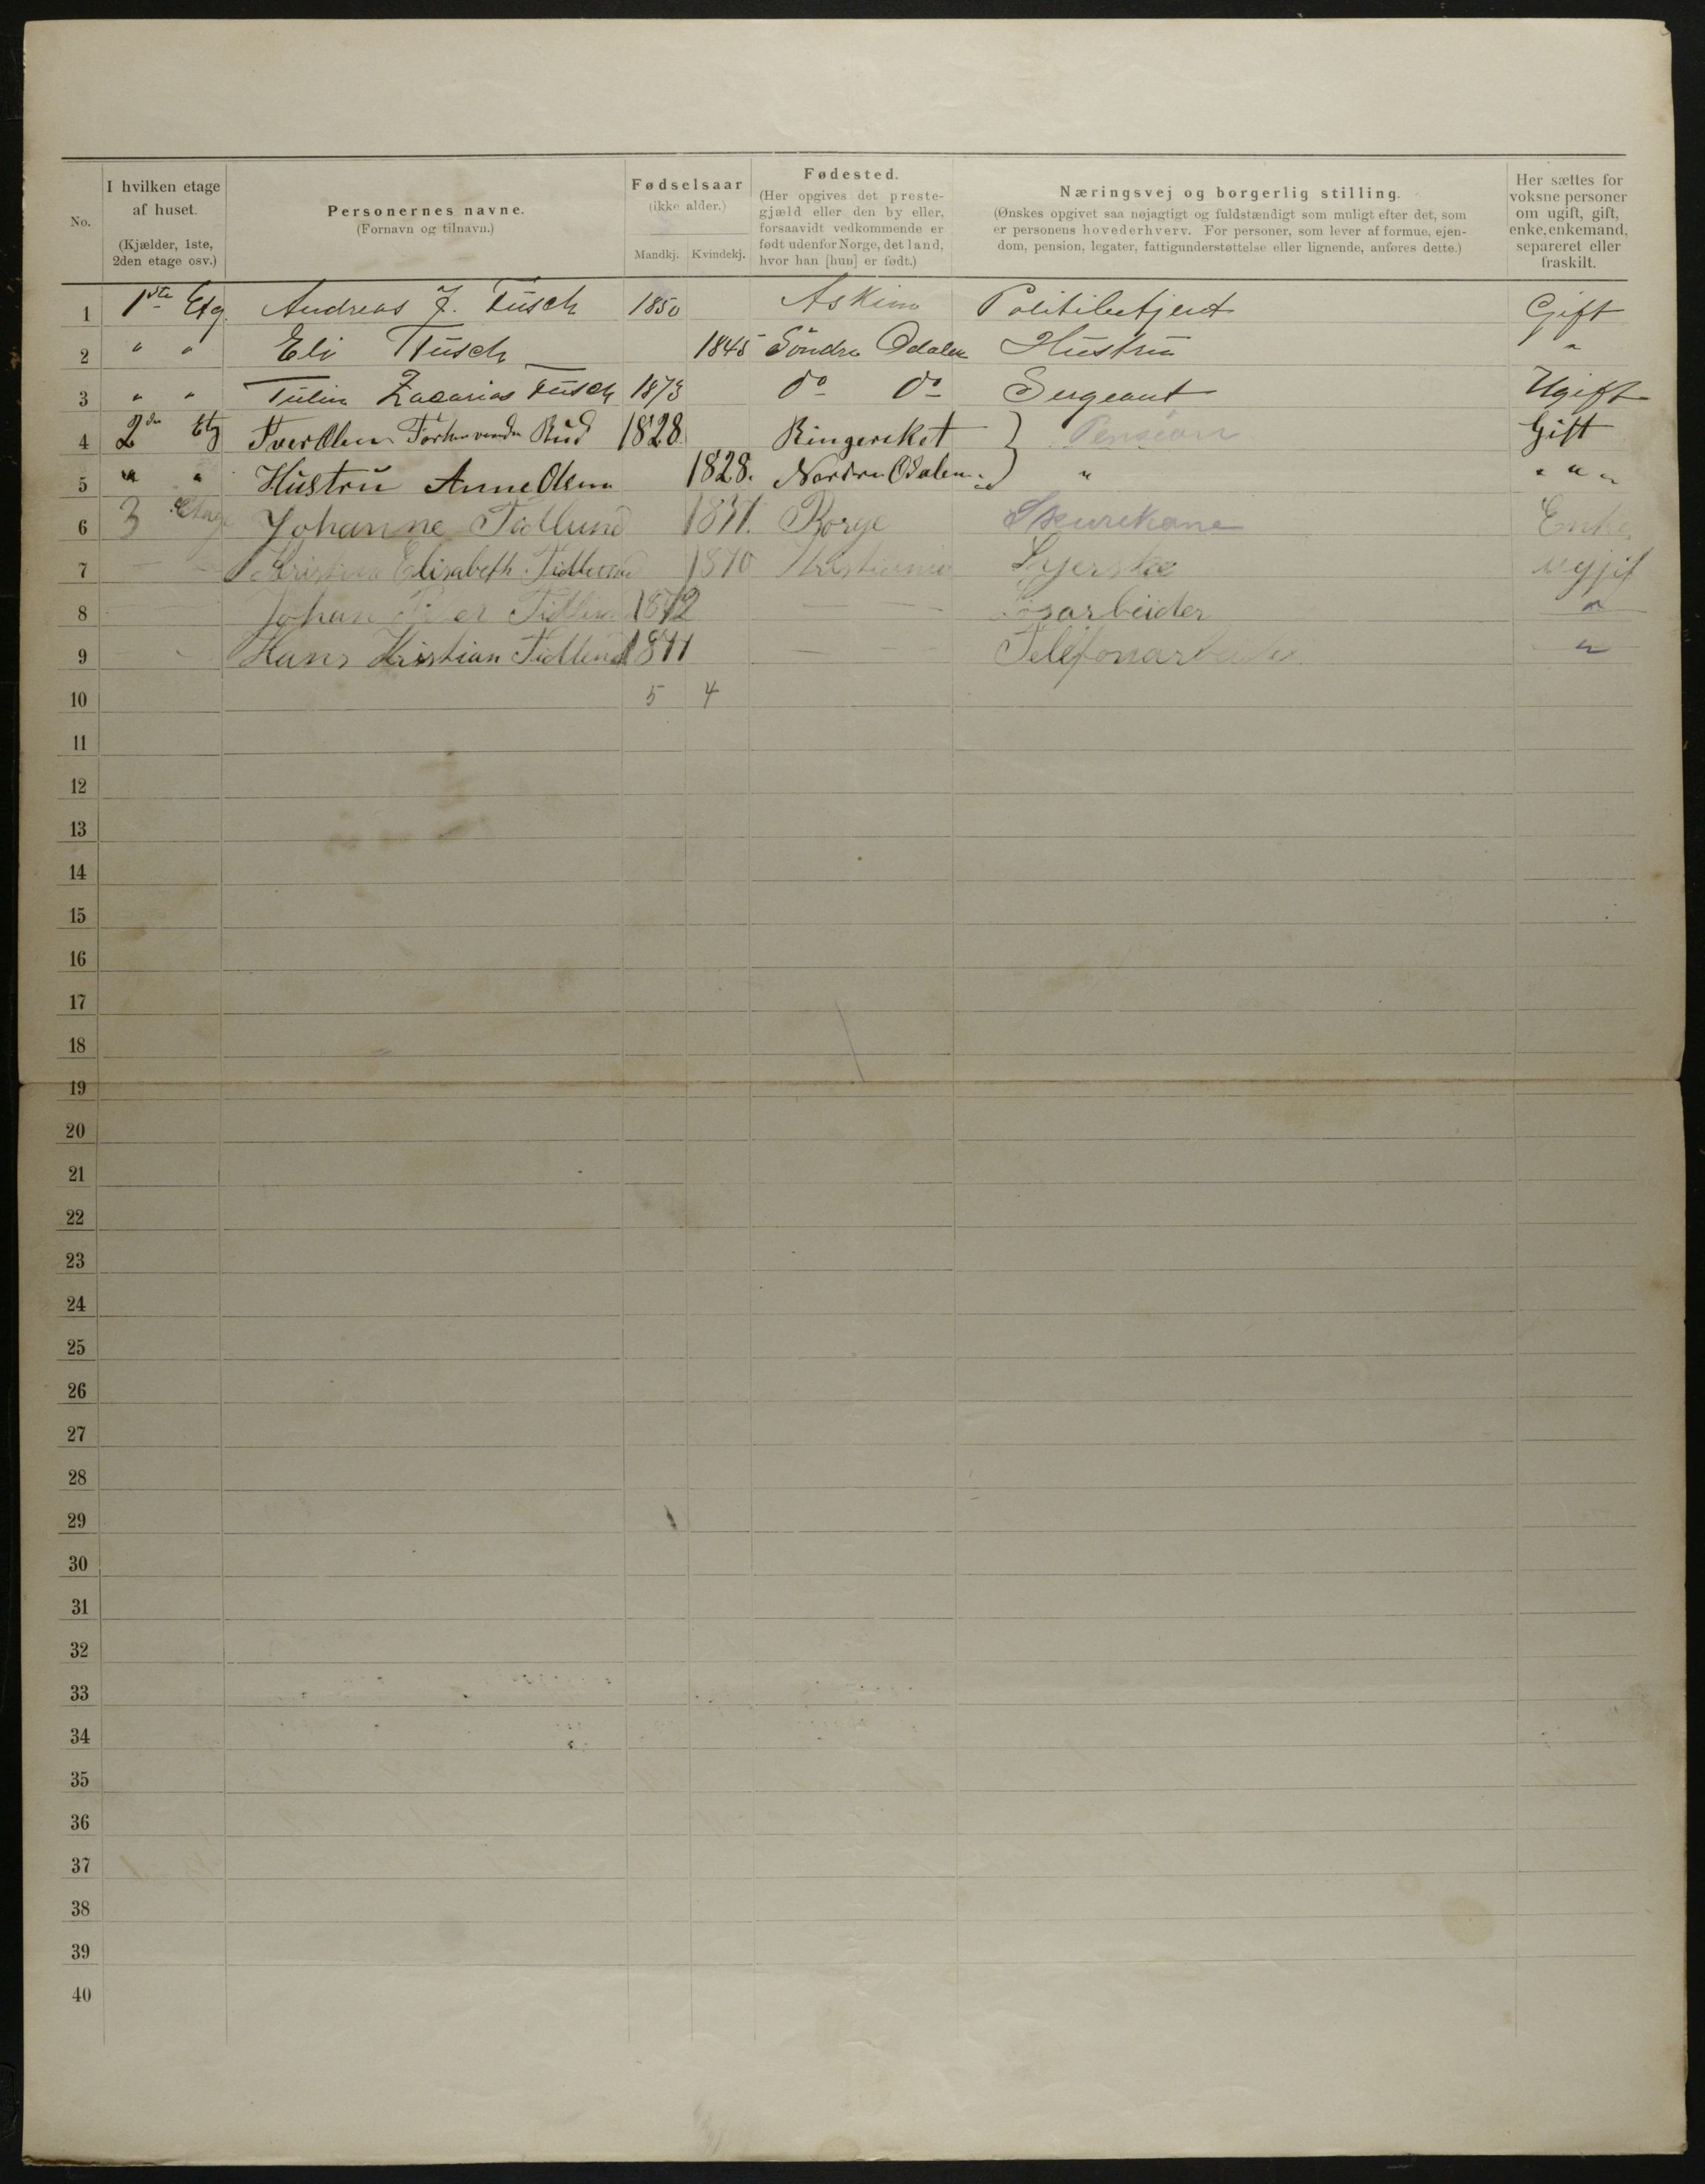 No.
I hvilken etage
af huset.
(Kjælder, 1ste,
2den etage osv.)
Personernes navne.
(Fornavn og tilnavn.)
Fødselsaar
(ikke alder.)
Mandkj. Kvindekj.
Fødested.
(Her opgives det preste-
gjæld eller den by eller,
forsaavidt vedkommende er
født udenfor Norge, det land,
hvor han [hun] er født.)
Næringsvej og borgerlig stilling.
(Ønskes opgivet saa nøjagtigt og fuldstændigt som muligt efter det, som
er personens hovederhverv. For personer, som lever af formue, ejen-
dom, pension, legater, fattigunderstøttelse eller lignende, anføres dette.)
Her sættes for
voksne personer
om ugift, gift,
enke, enkemand,
separeret eller
fraskilt.
1 1ste Etg. Andreas J. Tusch 1850 Askim Politibetjent Gift
2 " " Eli Tusch 1845 Söndre Odalen Hustru "
3 " " Zacarias Tusch 1873 do do Sergeant Ugift
4 2den Etg Iver Olsen Rud 1828 Ringeriket } Pension Gift
5 " " Hustru Anne Olsen 1828. Nordre Odalen " " " "
6 3 Etage Johanne Tidlund Borge Skurekone Enke
7 Elisabeth Tidlund 1870 Kristiania Syerske ugjift
8 Johan Tidlund 1872 "
9 Hans Kristian Tidlund Telefonarbeider "
10 5 4
11
12
13
14
15
16
17
18
19
20
21
22
23
24
25
26
27
28
29
30
31
32
33
34
35
36
37
38
39
40